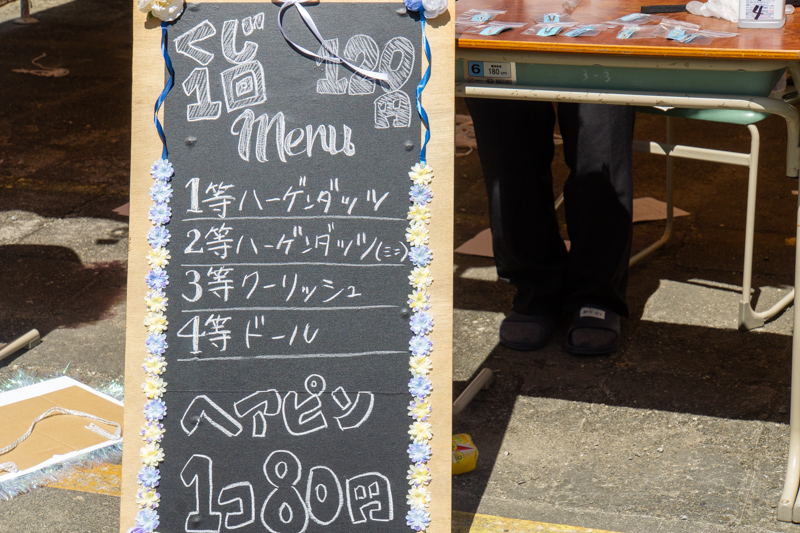 くじ 120
1回 円
Menu
1等 ハーゲンダッツ
2等 ハーゲンダッツ(ミニ)
3等 クーリッシュ
4等 ドール
ヘアピン
1コ80円
6 180cm
3-3
4